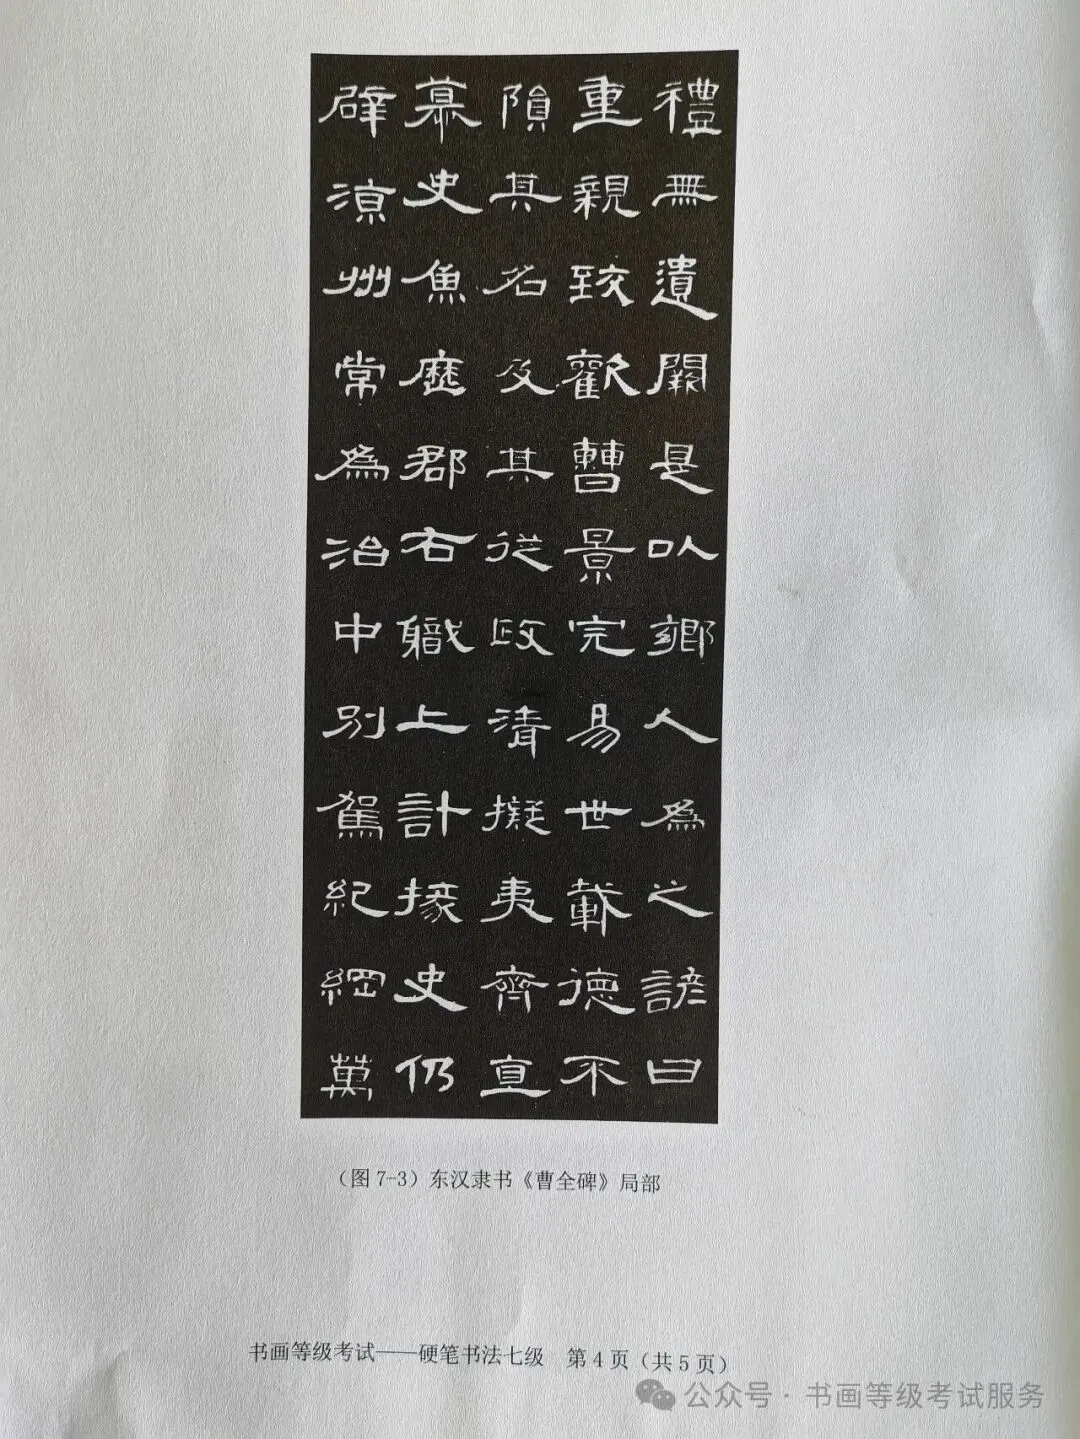 禮無遺闕是以鄉人為之諺曰
重親致歡曹景完易世載德不
隕其名及其從政清擬夷齊直
慕史魚歷郡右職上計掾史仍
辟涼州常為治中別駕紀綱萬
（图 7-3）东汉隶书《曹全碑》局部
书画等级考试——硬笔书法七级 第 4 页（共 5 页）
公众号·书画等级考试服务